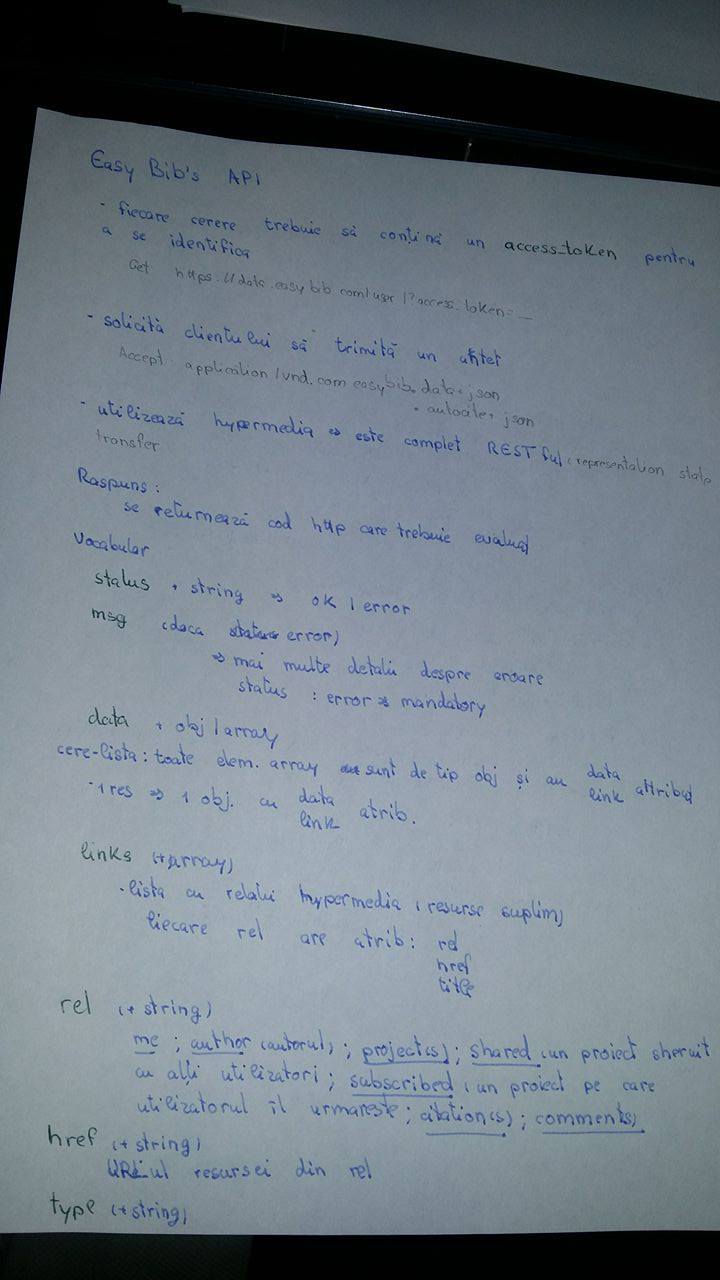 Easy Bib's API
- fiecare cerere trebuie să conțină un access_token pentru
a se identifica
Get https://data.easybib.com/user/?access_token=_
- solicită clientului să trimită un antet
Accept application/vnd.com.easybib.data+json
• autocite+json
- utilizează hypermedia => este complet RESTful (representation state
transfer
Raspuns:
se returnează cod http care trebuie evaluat
Vocabular
status + string => ok / error
msg (daca status error)
=> mai multe detalii despre eroare
status : error => mandatory
data + obj / array
cere-lista: toate elem. array sunt de tip obj și au data
link attribut
-1 res => 1 obj. cu data
link atrib.
links (+array)
-lista cu relații hypermedia (resurse suplim)
fiecare rel are atrib: rel
href
title
rel (+ string)
me ; author (autorul) ; project(s) ; shared (un proiect sheruit
cu alți utilizatori ; subscribed (un proiect pe care
utilizatorul îl urmareste ; citation(s) ; comment(s)
href (+ string)
URL-ul resursei din rel
type (+string)